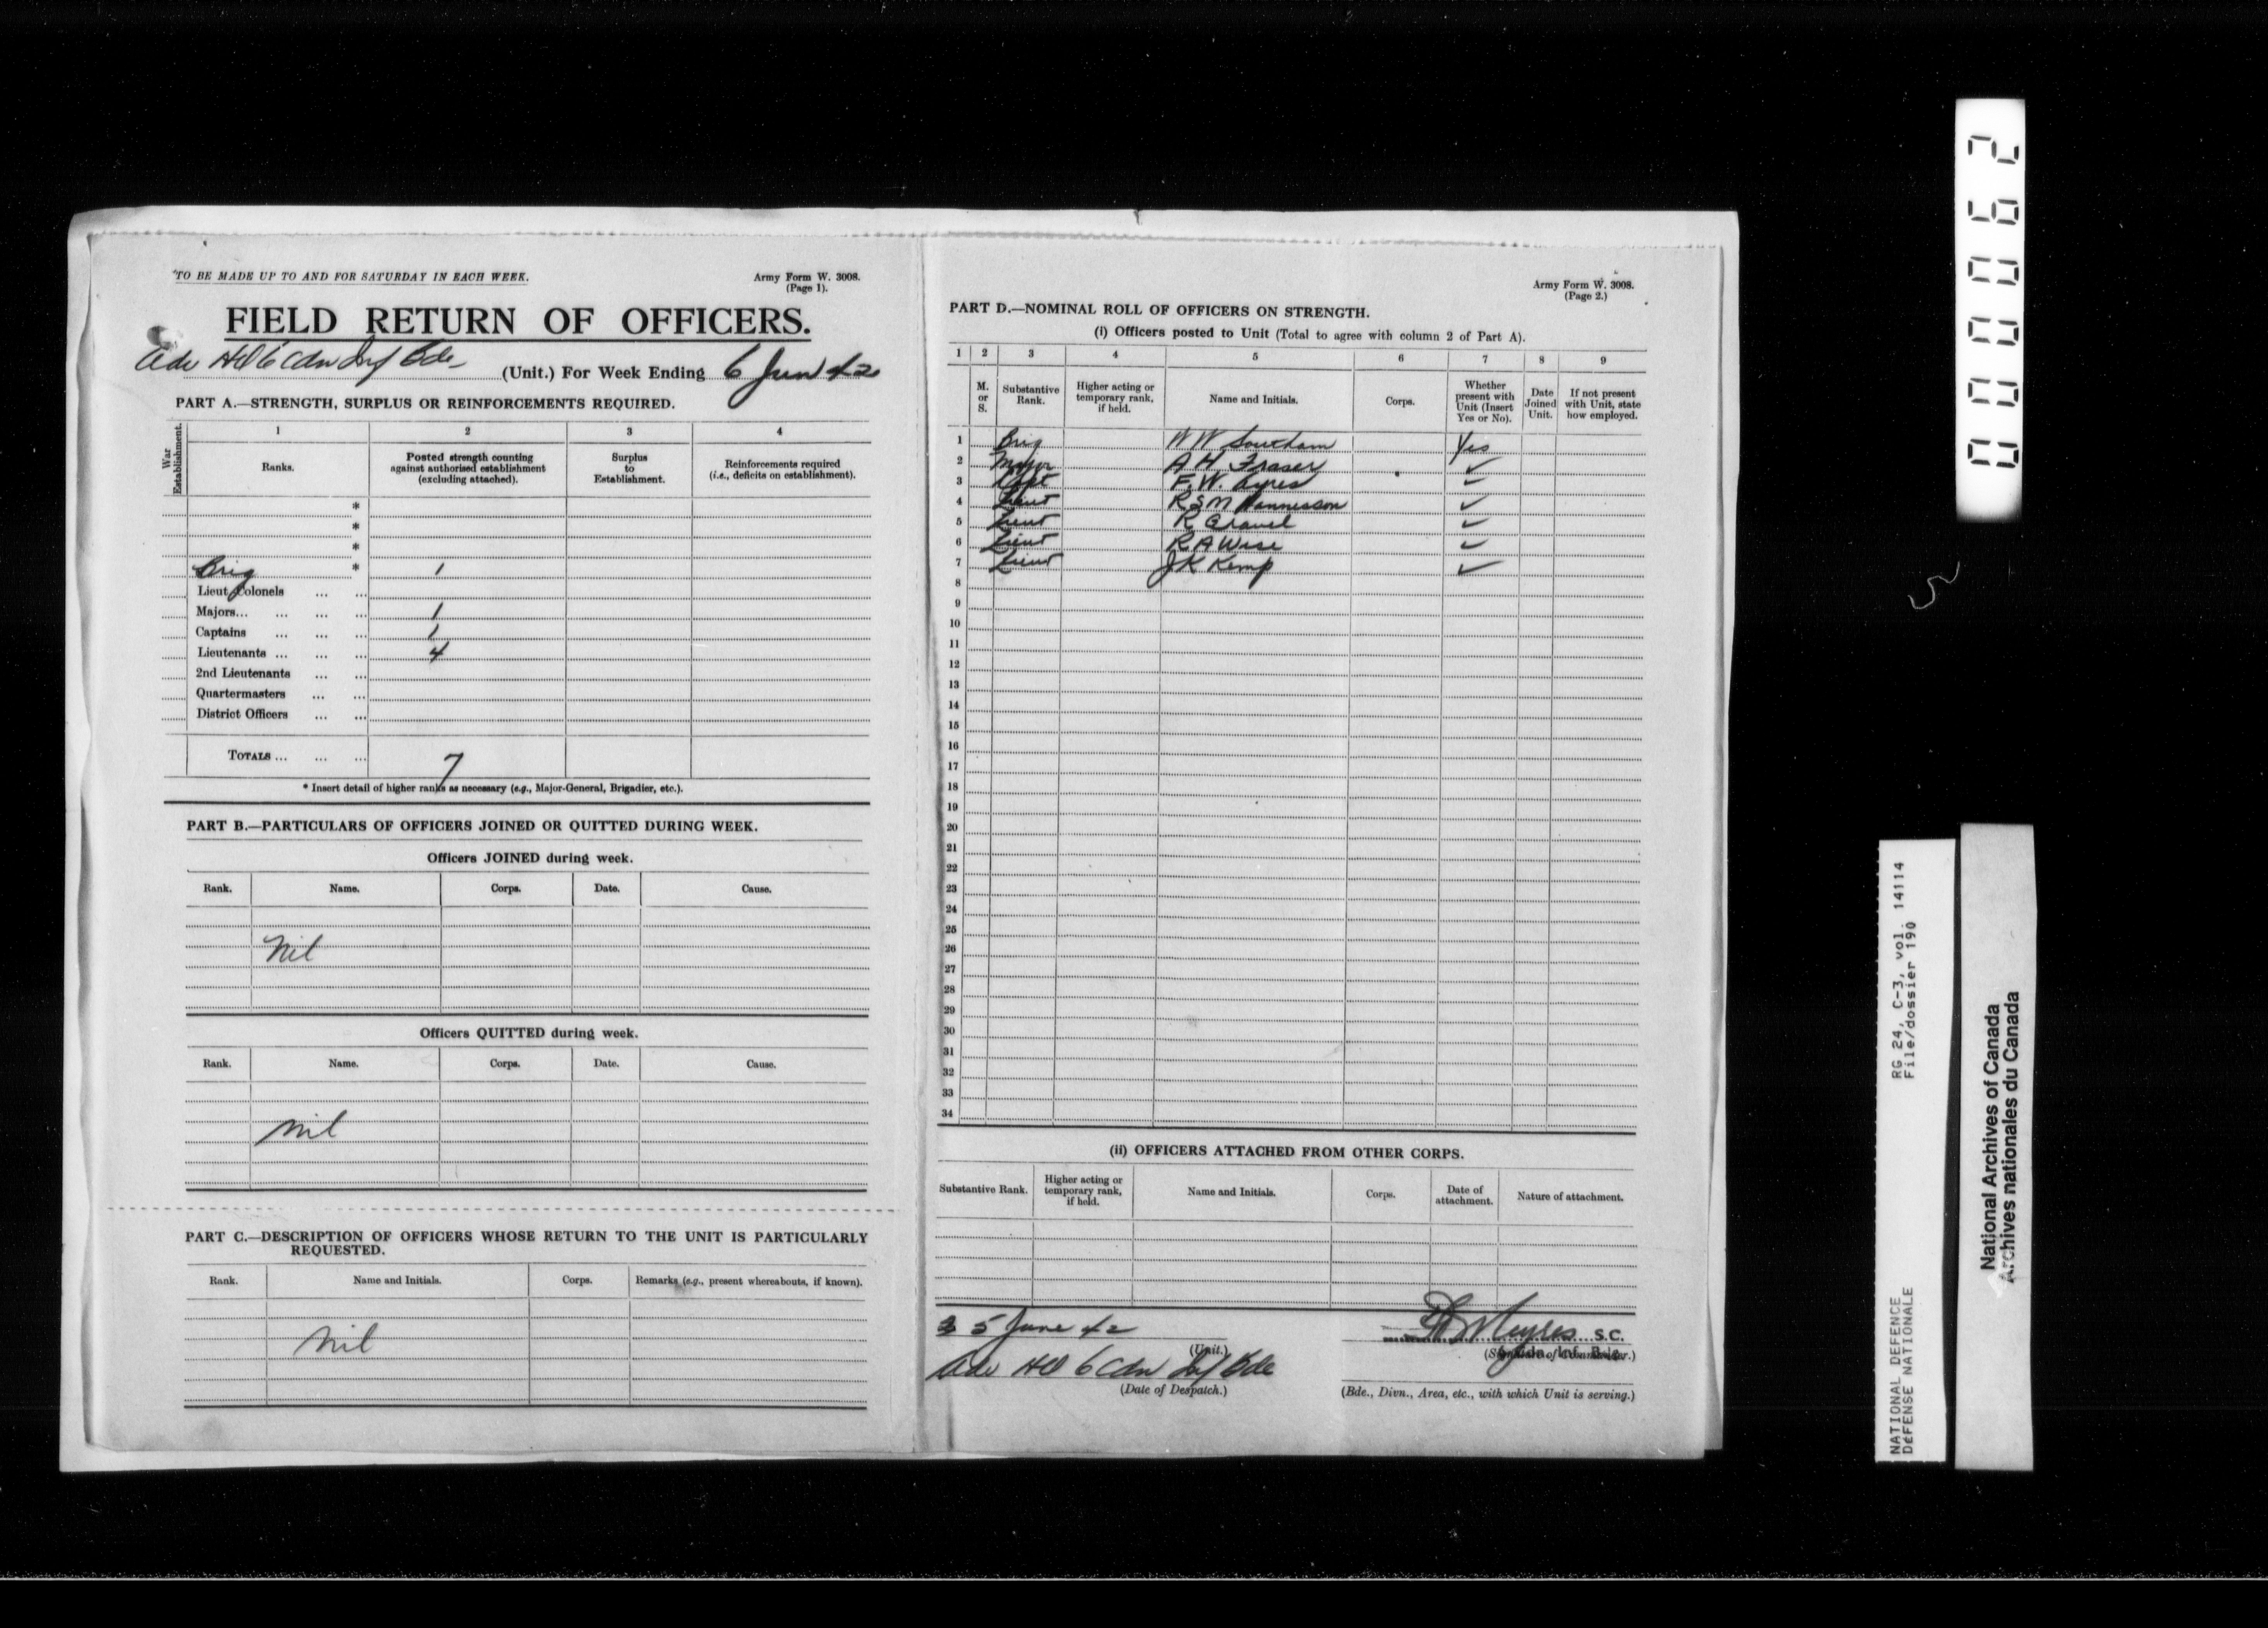 TO BE MADE UP TO AND FOR SATURDAY IN EACH WEEK.
Army Form W. 3008.
(Page 1).
FIELD RETURN OF OFFICERS.
Adv HQ 6 Cdn Inf Bde (Unit.) For Week Ending 6 Jun 42
PART A.—STRENGTH, SURPLUS OR REINFORCEMENTS REQUIRED.
War Establishment.
1 2 3 4
Ranks.
Posted strength counting against authorised establishment (excluding attached).
Surplus to Establishment.
Reinforcements required (i.e., deficits on establishment).
*
*
*
Brig * 1
Lieut Colonels ... ...
Majors... ... ... ... 1
Captains ... ... ... 1
Lieutenants ... ... ... 4
2nd Lieutenants ... ...
Quartermasters ... ...
District Officers ... ...
TOTALS ... ... ... 7
* Insert detail of higher ranks as necessary (e.g., Major-General, Brigadier, etc.).
PART B.—PARTICULARS OF OFFICERS JOINED OR QUITTED DURING WEEK.
Officers JOINED during week.
Rank. Name. Corps. Date. Cause.
Nil
Officers QUITTED during week.
Rank. Name. Corps. Date. Cause.
Nil
PART C.—DESCRIPTION OF OFFICERS WHOSE RETURN TO THE UNIT IS PARTICULARLY
REQUESTED.
Rank. Name and Initials. Corps. Remarks (e.g., present whereabouts, if known).
Nil
Army Form W. 3008.
(Page 2.)
PART D.—NOMINAL ROLL OF OFFICERS ON STRENGTH.
(i) Officers posted to Unit (Total to agree with column 2 of Part A).
1 2 3 4 5 6 7 8 9
M. or S.
Substantive Rank.
Higher acting or temporary rank, if held.
Name and Initials.
Corps.
Whether present with Unit (Insert Yes or No).
Date Joined Unit.
If not present with Unit, state how employed.
1 Brig W W Southam Yes
2 Major A H Fraser ✓
3 Capt F.W. Ayres ✓
4 Lieut R S M ✓
5 Lieut R Gravel ✓
6 Lieut R A Wise ✓
7 Lieut J K Kemp ✓
8
9
10
11
12
13
14
15
16
17
18
19
20
21
22
23
24
25
26
27
28
29
30
31
32
33
34
(ii) OFFICERS ATTACHED FROM OTHER CORPS.
Substantive Rank.
Higher acting or temporary rank, if held.
Name and Initials.
Corps.
Date of attachment.
Nature of attachment.
5 June 42
(Unit.)
S.C.
6 Cdn. Inf. Bde.
(Signature of Commander.)
Adv HQ 6 Cdn Inf Bde
(Date of Despatch.)
(Bde., Divn., Area, etc., with which Unit is serving.)
000062
RG 24, C-3, vol. 14114
File/dossier 190
NATIONAL DEFENCE
DÉFENSE NATIONALE
National Archives of Canada
Archives nationales du Canada